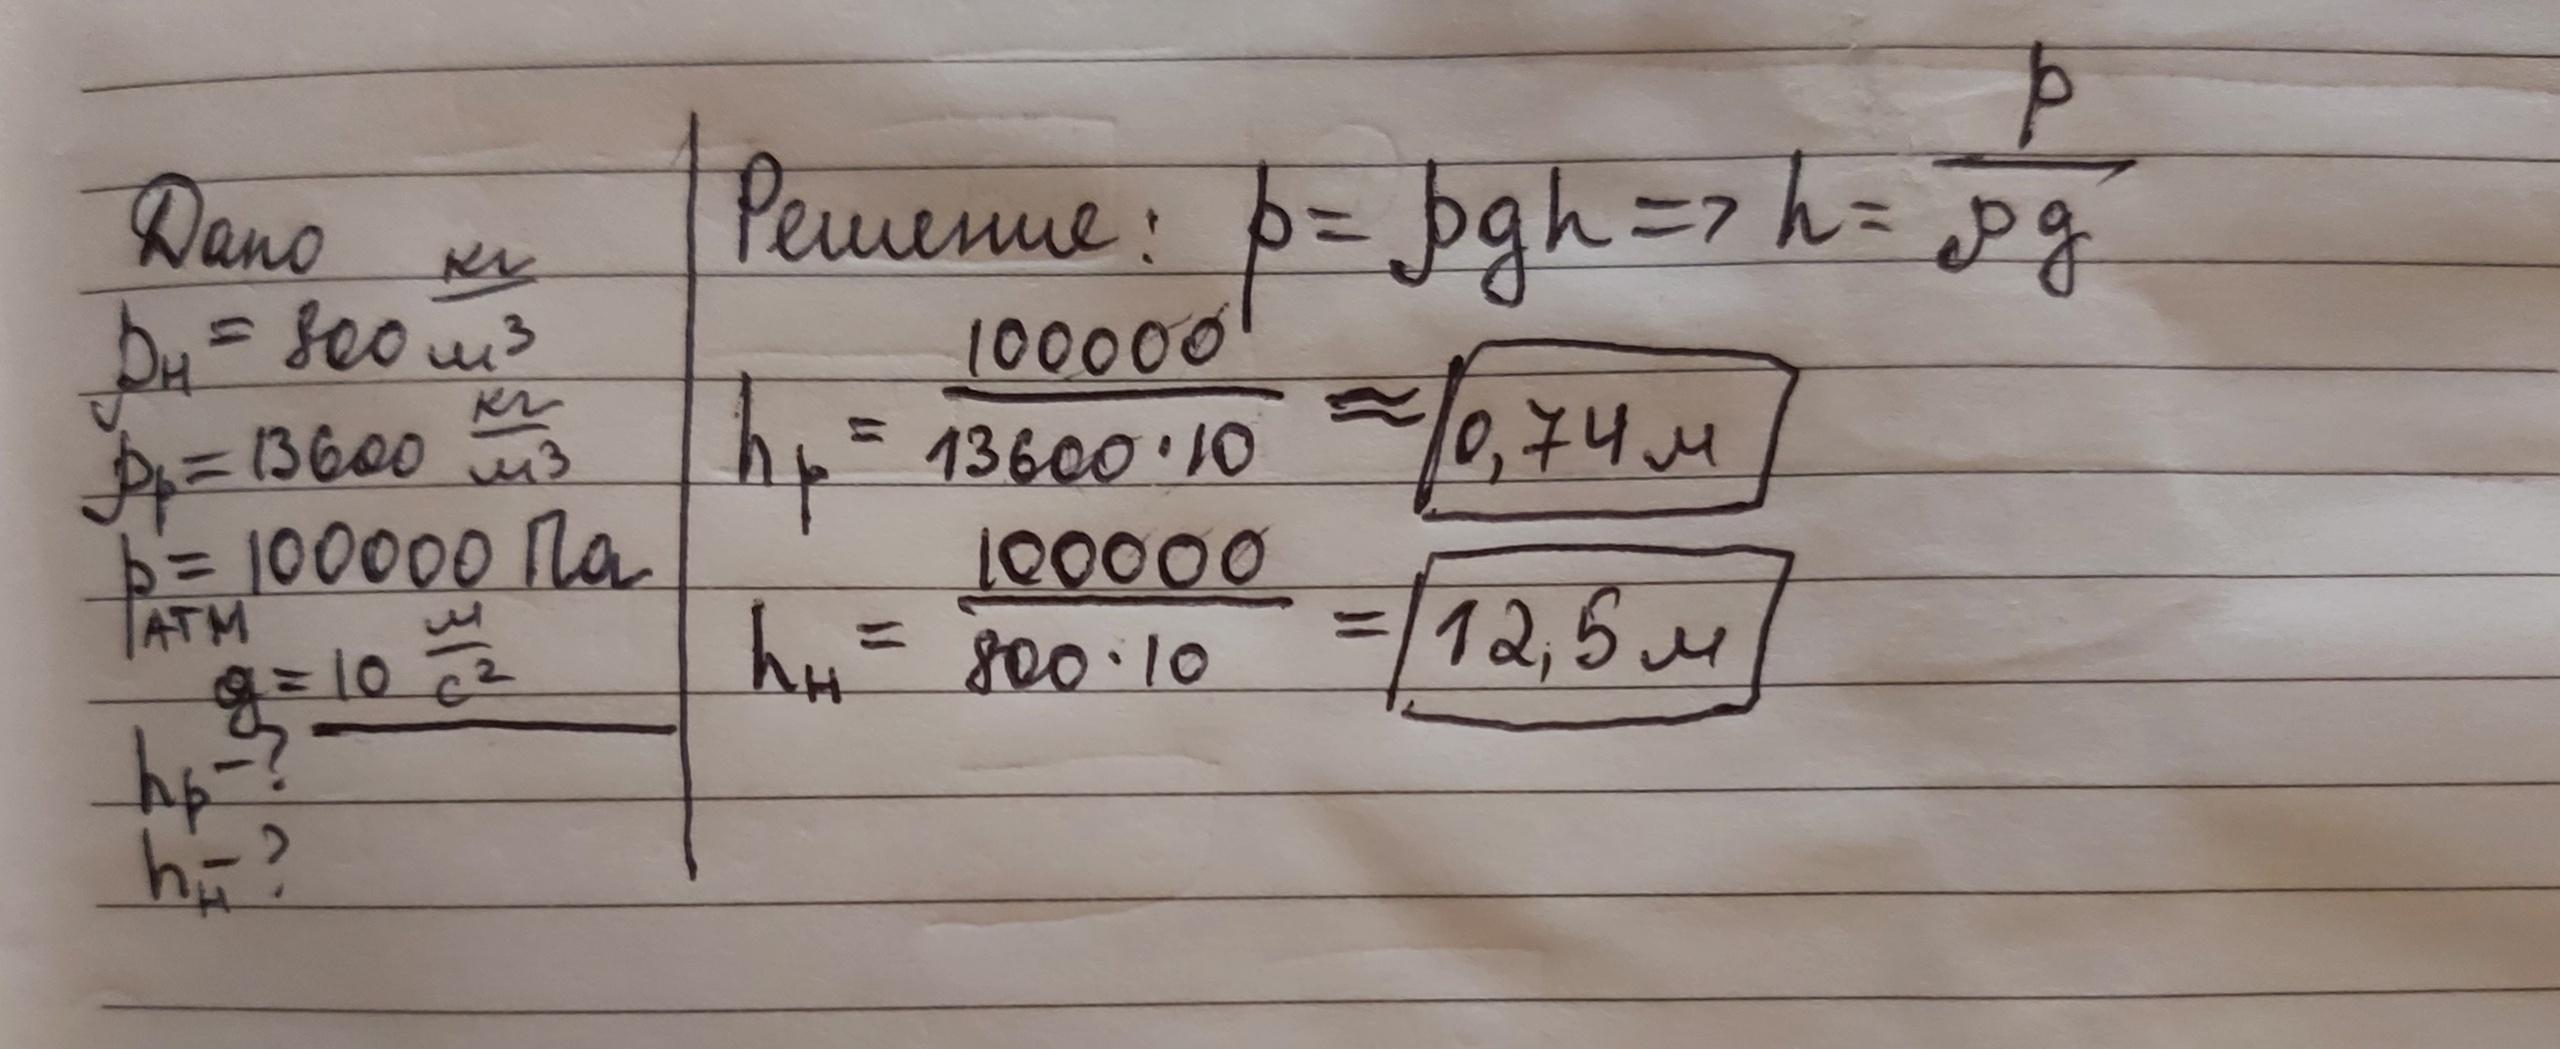 Дано
ρн = 800 кг/м³
ρр = 13600 кг/м³
p атм = 100000 Па
g = 10 м/с²
hр - ?
hн - ?
Решение: p = ρgh => h = p/ρg
hр = 100000/13600·10 ≈ 0,74 м
hн = 100000/800·10 = 12,5 м